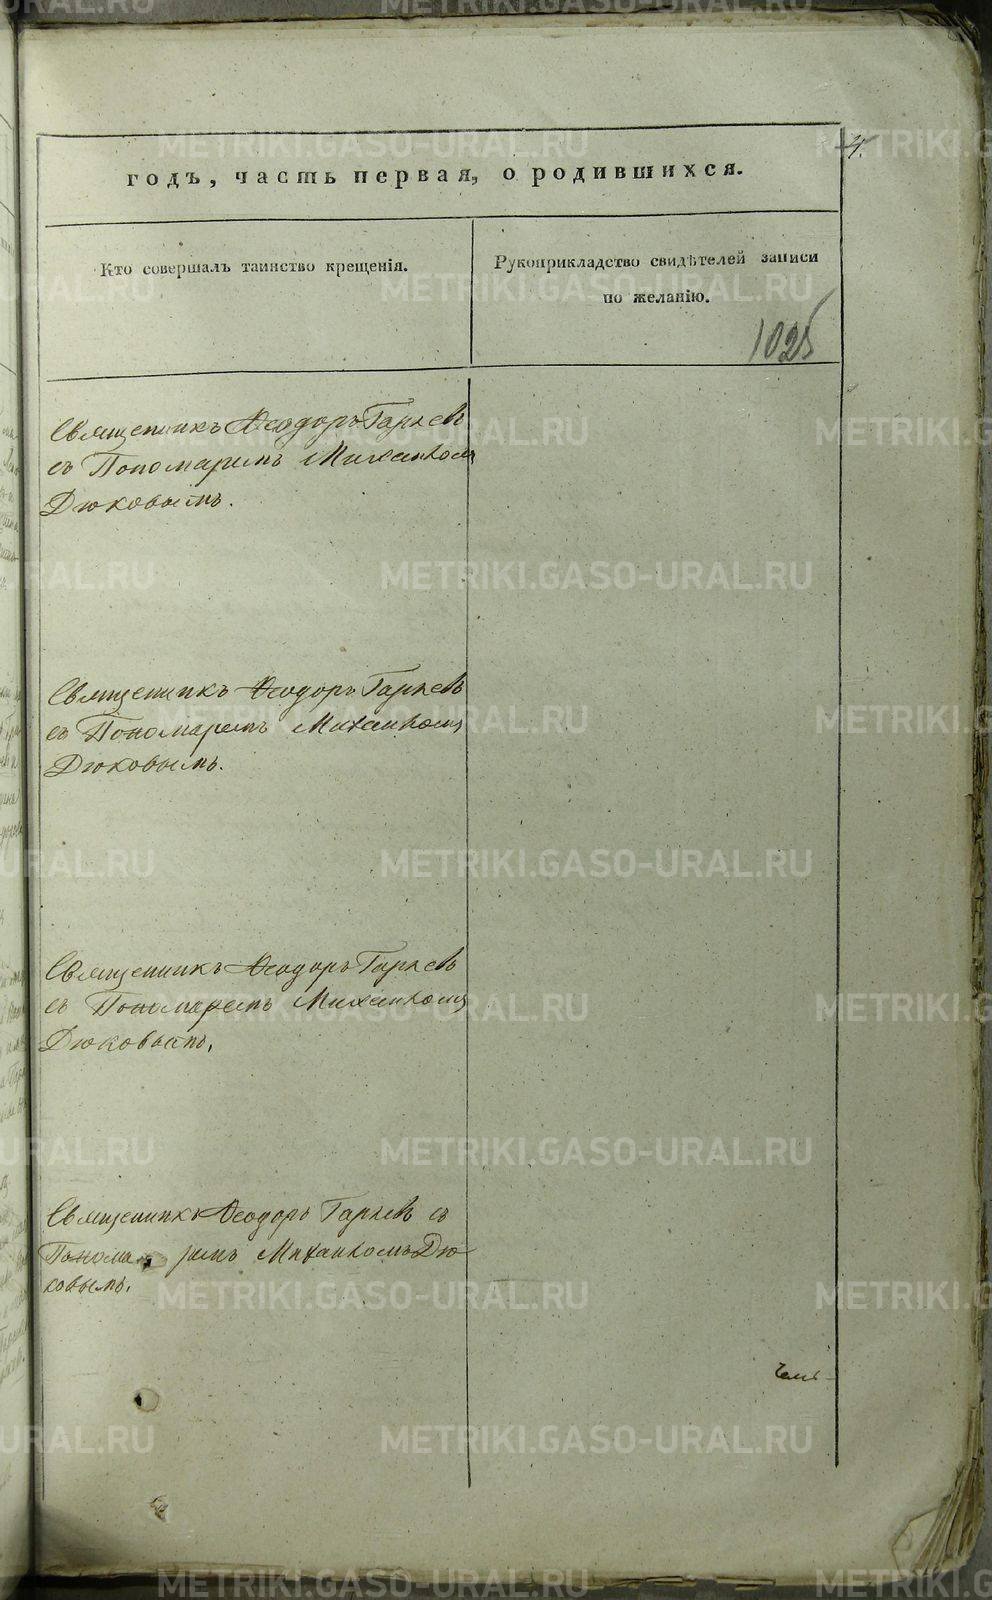 4.
годъ, часть первая, о родившихся.
Кто совершалъ таинство крещенія.
Рукоприкладство свидѣтелей записи
по желанію.
1025
Священникъ Ѳеодоръ Гаряевъ
съ Пономаремъ Михаиломъ
Дюковымъ.
Священникъ Ѳеодоръ Гаряевъ
съ Пономаремъ Михаиломъ
Дюковымъ.
Священникъ Ѳеодоръ Гаряевъ
съ Пономаремъ Михаиломъ
Дюковымъ.
Священникъ Ѳеодоръ Гаряевъ съ
Пономаремъ Михаиломъ Дю
ковымъ.
METRIKI.GASO-URAL.RU